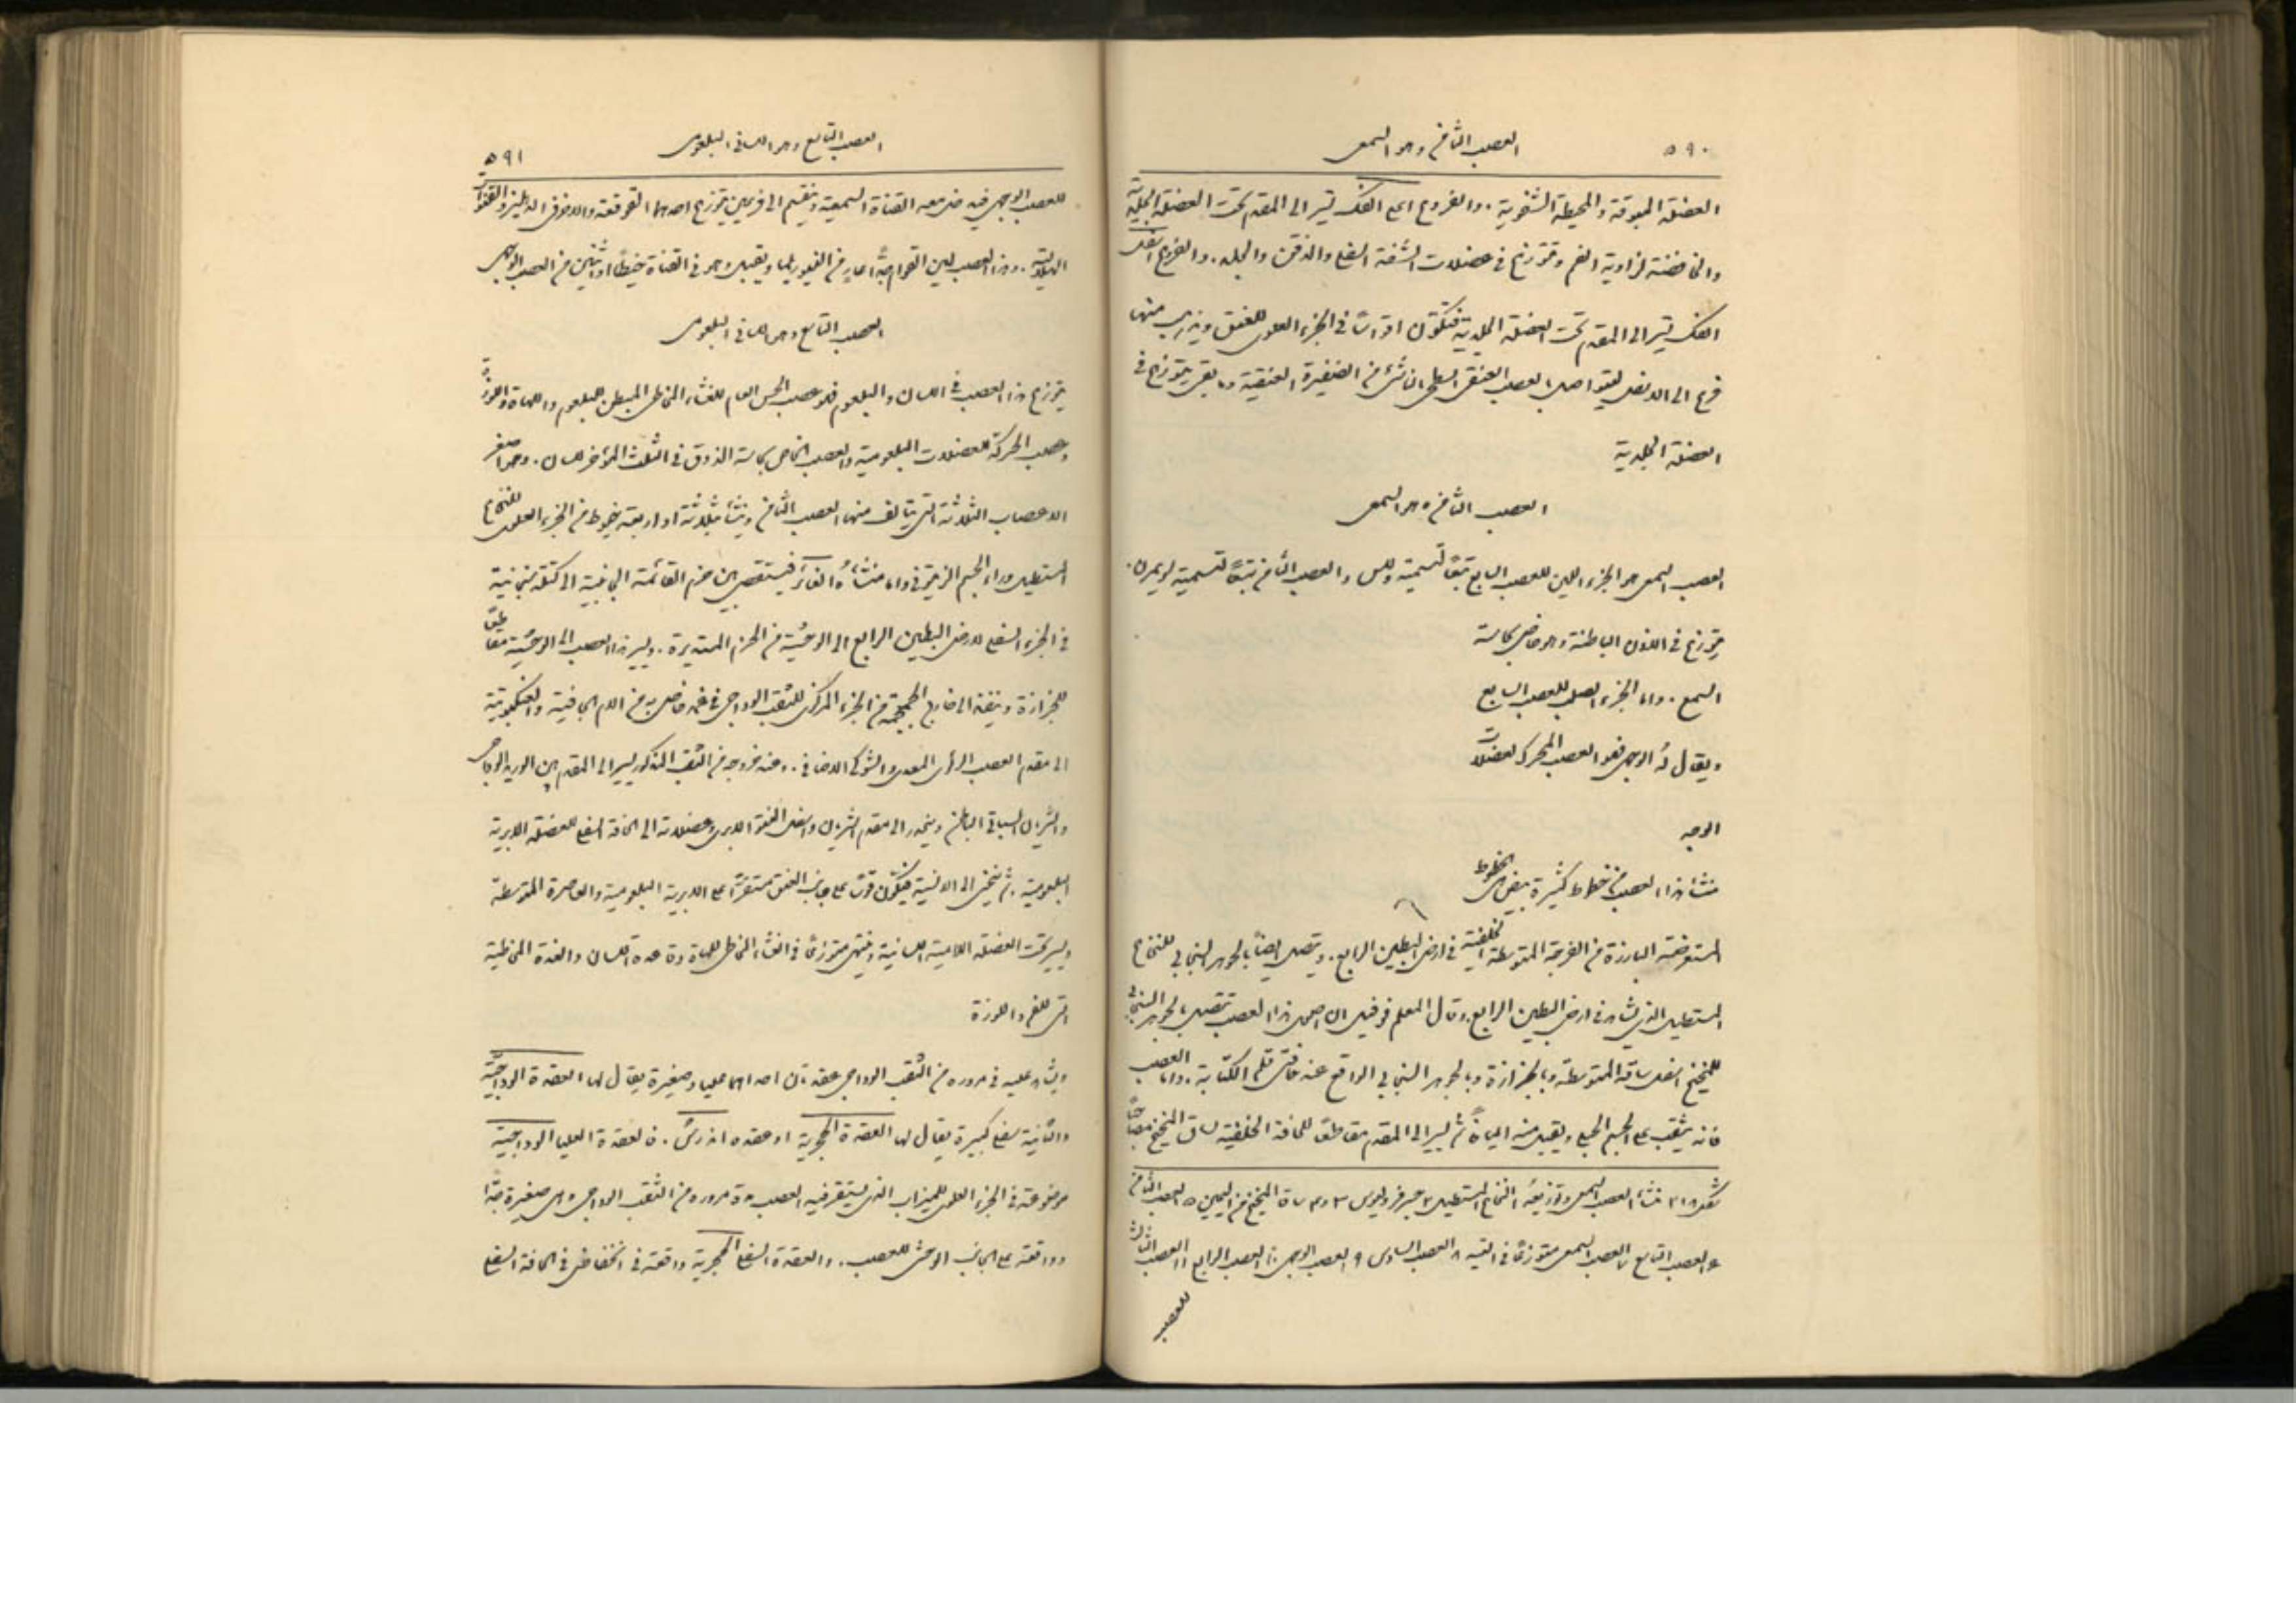 ٥٩٠
العصب الثامن وهو السمعي
العضلة المبوقة والمحيطة الشفوية. والفروع اعلى الفك تسير الى المقدم تحت العضلة الجلدية
والخافضة لزاوية الفم وتتوزع في عضلات الشفة السفلى والذقن والجلد. والفروع اسفل
الفك تسير الى المقدم تحت العضلة الجلدية فتكوّن اقواساً في الجزء العلوي للعنق ويذهب منها
فرع الى الاسفل ليتواصل بالعصب العنقي السطحي الناشئ من الضفيرة العنقية وما بقي يتوزع في
العضلة الجلدية
العصب الثامن وهو السمعي
العصب السمعي هو الجزء اللين للعصب السابع تبعاً لتسمية ولس والعصب الثامن تبعاً لتسمية
يتوزع في الاذن الباطنة وهو خاص بحاسة
السمع. واما الجزء الصلب للعصب السابع
ويقال له الوجهي فهو العصب المحرك لعضلات
الوجه
منشأ هذا العصب من خطوط كثيرة بيض هي الخطوط
المستعرضة البارزة من الفرجة المتوسطة الخلفية في ارض البطين الرابع. ويتصل ايضاً بالجوهر السنجابي للنخاع
المستطيل الذي يشاهد في ارض البطين الرابع. وقال المعلم فوفيل ان اصول هذا العصب تتصل بالجوهر السنجابي
للمخيخ اسفل ساقه المتوسطة وبالجزازة وبالجوهر السنجابي الواقع عند قلم الكتابة. واما العصب
فانه يثقب على الجسم الحبلي ويقبل منه اليافاً ثم يسير الى المقدم مقاطعاً للحافة الخلفية لساق المخيخ
شكل ٢١٨ منشأ العصب السمعي وتوزيعه ١ النخاع المستطيل ٢ جسر فروليوس ٣ و٤ ساقا المخيخ من اليمين ٥ العصب الثامن
٦ العصب التاسع ٧ العصب السمعي متوزعاً في التيه ٨ العصب السادس ٩ العصب الوجهي ١٠ العصب الرابع ١١ العصب الثالث
للعصب
العصب التاسع وهو اللساني البلعومي
٥٩١
للعصب الوجهي فيدخل معه القناة السمعية وينقسم الى فرعين يتوزع احدهما القوقعة والاخر في الدهليز والقنوات
الهلالية. وهذا العصب لين القوام جداً عارٍ من النفيورليما ويقبل وهو في القناة خيطاً او اثنين من العصب الوجهي
العصب التاسع وهو اللساني البلعومي
يتوزع هذا العصب في اللسان والبلعوم فهو عصب الحس العام للغشاء المخاطي المبطن للبلعوم واللهاة واللوزة
وعصب الحركة للعضلات البلعومية والعصب الخاص بحاسة الذوق في الثلث المؤخر للسان. وهو اصغر
الاعصاب الثلاثة التي يتالف منها العصب الثامن وينشأ بثلاثة او اربعة خيوط من الجزء العلوي للنخاع
المستطيل وراء الجسم الزيتوني واما منشأه الغائر فيستقصى بين حزم القائمة الجانبية الى كتلة سنجابية
في الجزء السفلي لارض البطين الرابع الى الوحشية من الحزم المستديرة. ويسير هذا العصب الى الوحشية مقاطعاً
للجزازة وينفذ الى خارج الجمجمة من الجزء المركزي للثقب الوداجي في غمد خاص به من الام الجافية والعنكبوتية
الى مقدم العصب الرئوي المعدي والشوكي الاضافي. وعند خروجه من الثقب المذكور يسير الى المقدم بين الوريد الوداجي
والشريان السباتي الباطن وينحدر الى مقدم الشريان واسفل النتو الابري وعضلاته الى الحافة السفلى للعضلة الابرية
البلعومية. ثم ينحني الى الانسية فيكوّن قوساً على جانب العنق مستقراً على الابرية البلعومية والعاصرة المتوسطة
ويسير تحت العضلة اللامية اللسانية وينتهي متوزعاً في الغشاء المخاطي للهاة وقاعدة اللسان والغدد المخاطية
التي للفم واللوزة
ويشاهد عليه في مروره من الثقب الوداجي عقدتان احداهما عليا وصغيرة يقال لها العقدة الوداجية
والثانية سفلى كبيرة يقال لها العقدة الحجرية او عقدة اندرش. فالعقدة العليا الوداجية
موضوعة في الجزء العلوي للميزاب الذي يستقر فيه العصب مدة مروره من الثقب الوداجي وهي صغيرة جداً
وواقعة على الجانب الوحشي للعصب. والعقدة السفلى الحجرية واقعة في انخفاض في الحافة السفلى